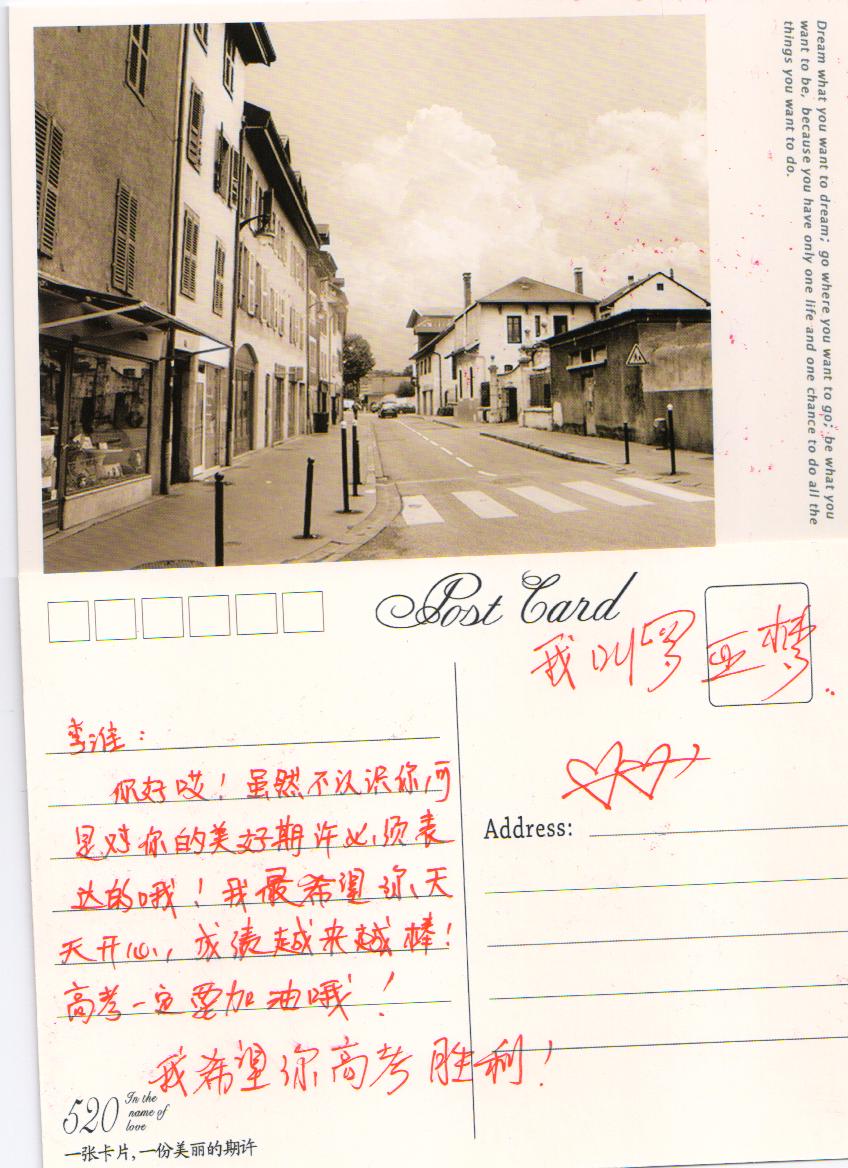 Dream what you want to dream; go where you want to go; be what you
want to be, because you have only one life and one chance to do all the
things you want to do.
Post Card
我叫罗亚梦.
李淮：
你好哎！虽然不认识你,可
是对你的美好期许必须表
达的哦！我最希望你天
天开心,成绩越来越棒！
高考一定要加油哦！
我希望你高考胜利！
Address:
520
In the
name of
love
一张卡片,一份美丽的期许